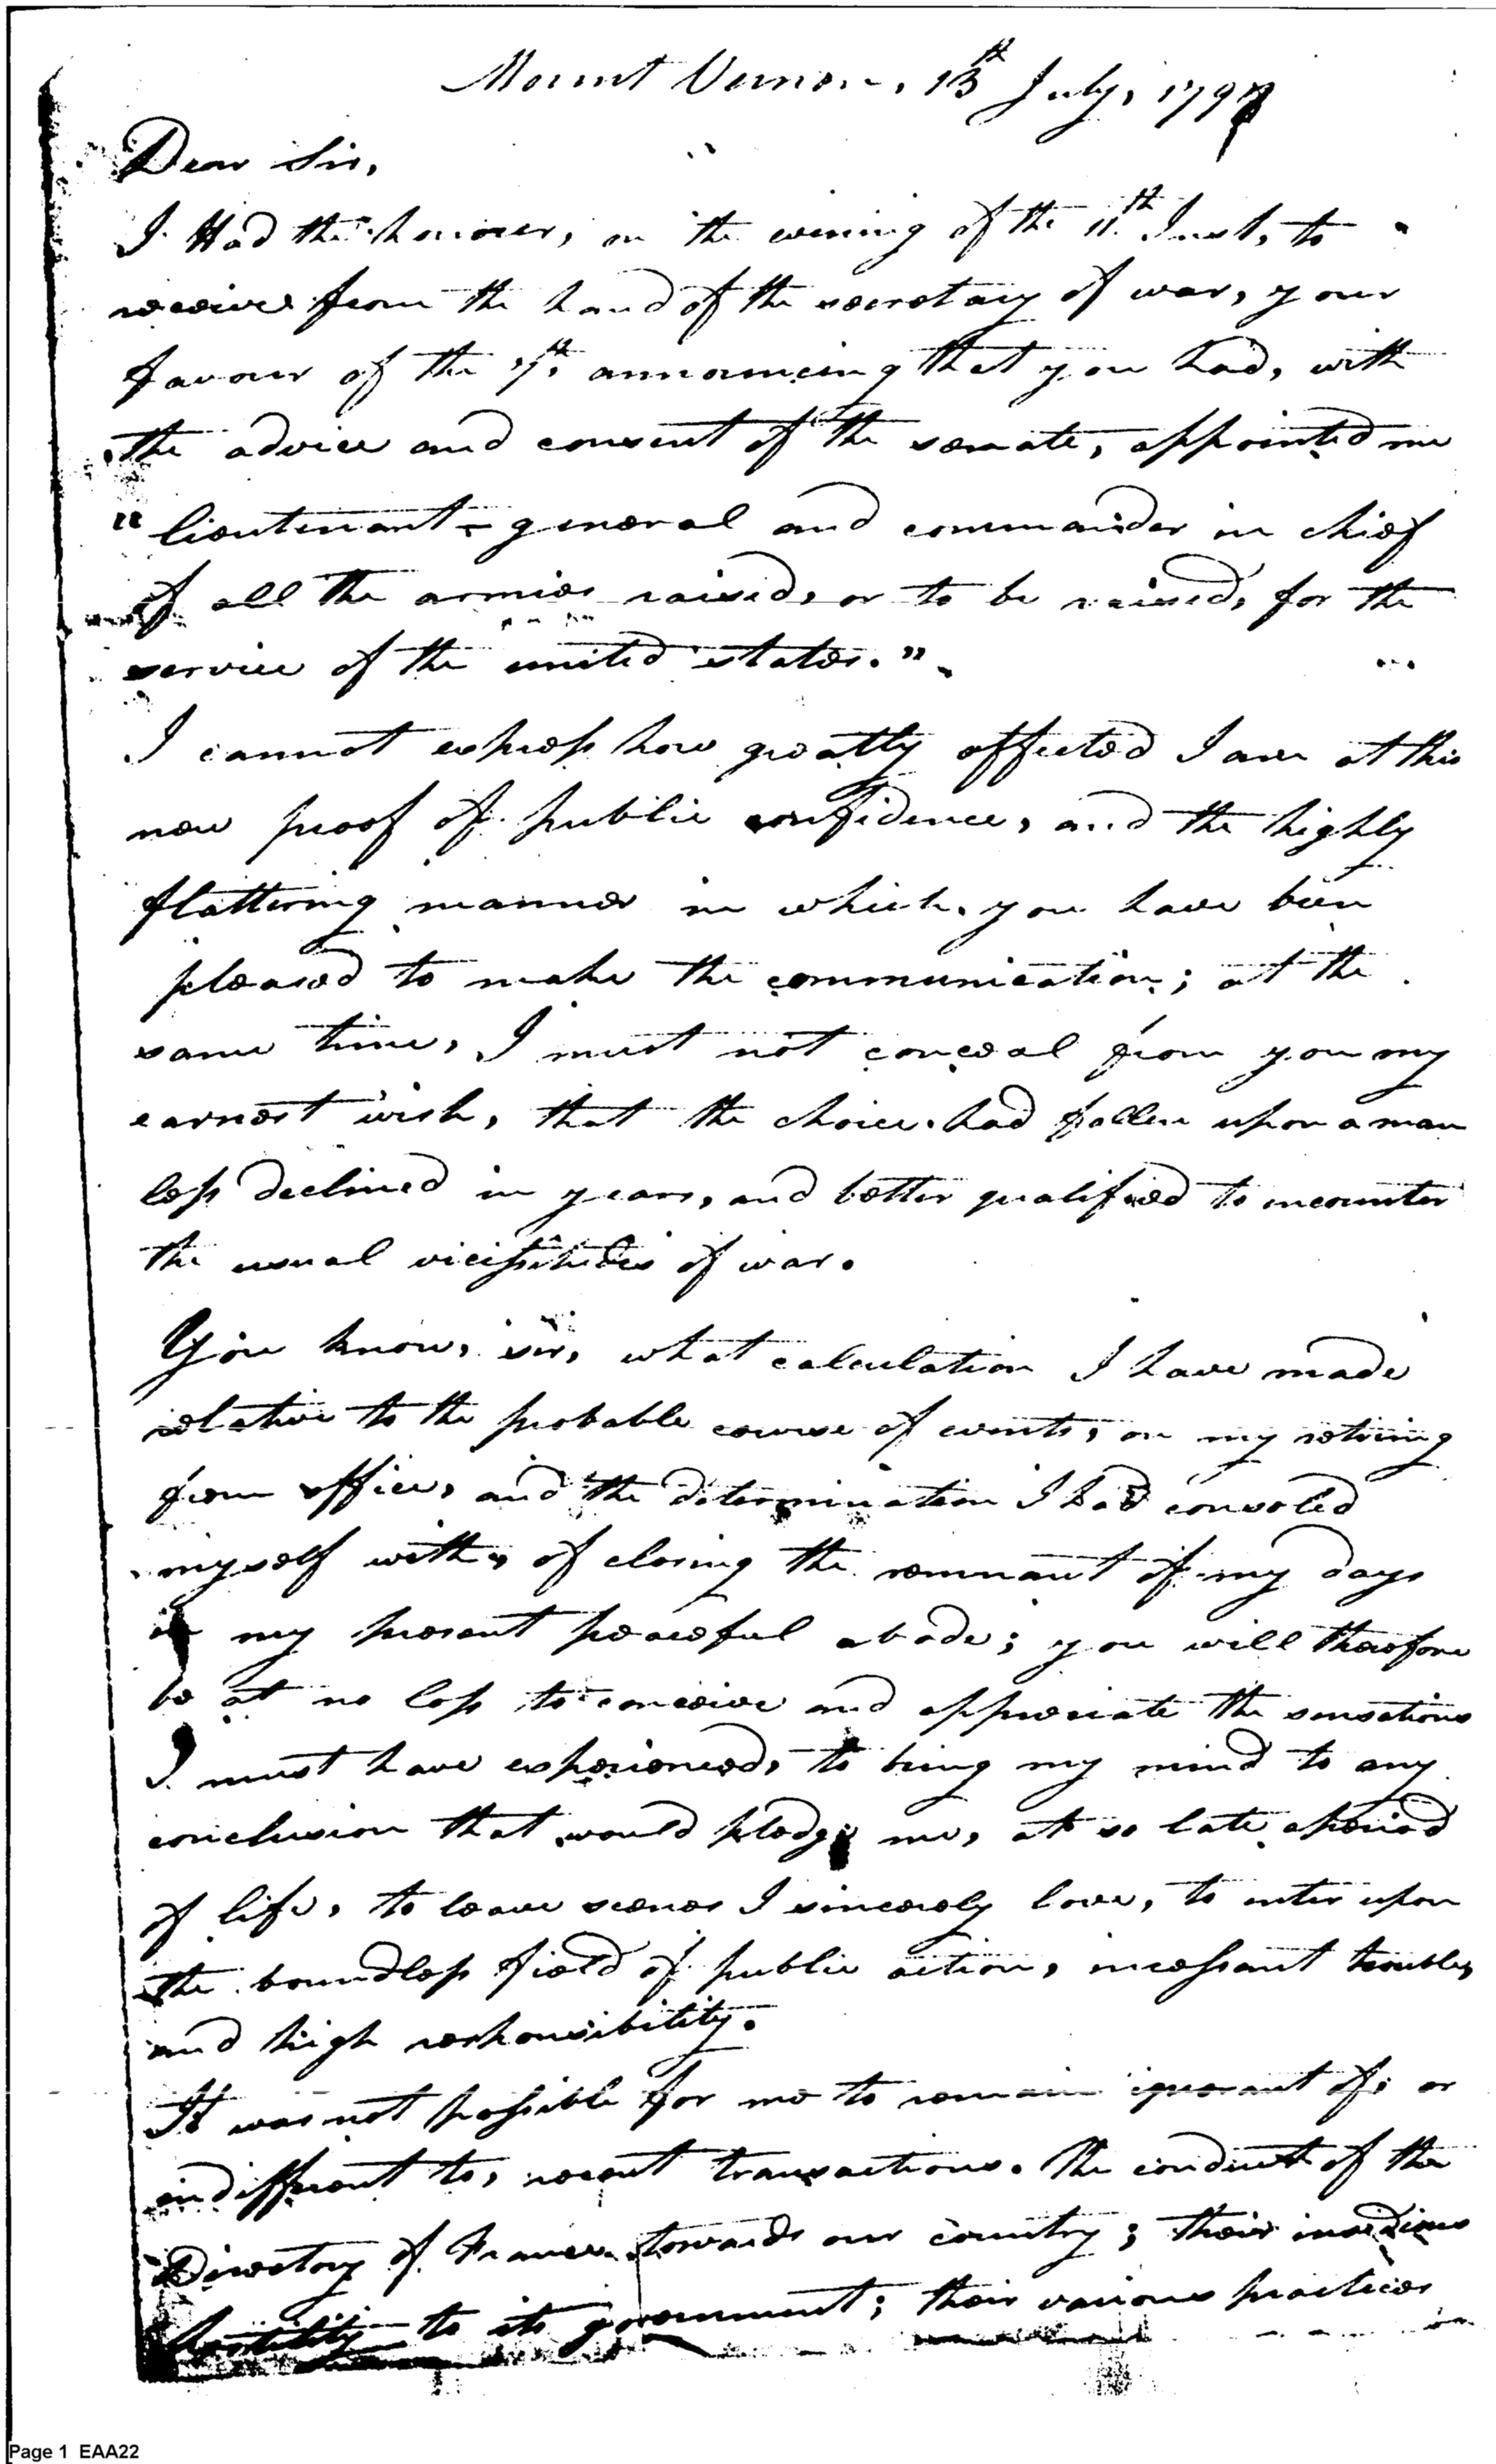 Mount Vernon, 13th July, 1798
Dear Sir,
I Had the honour, on the evening of the 11th Inst, to
receive from the hand of the secretary of war, your
favour of the 7th announcing that you had, with
the advice and consent of the senate, appointed me
"lieutenant-general and commander in chief
of all the armies raised, or to be raised, for the
service of the united states."
I cannot express how greatly affected I am at this
new proof of public confidence, and the highly
flattering manner in which you have been
pleased to make the communication; at the
same time, I must not conceal from you my
earnest wish, that the choice had fallen upon a man
less declined in years, and better qualified to encounter
the usual vicissitudes of war.
You know, sir, what calculation I have made
relative to the probable course of events, on my retiring
from office, and the determination I had consoled
myself with, of closing the remnant of my days
in my present peaceful abode; you will therefore
be at no loss to conceive and appreciate the sensations
I must have experienced, to bring my mind to any
conclusion that would pledge me, at so late a period
of life, to leave scenes I sincerely love, to enter upon
the boundless field of public action, incessant trouble,
and high responsibility.
It was not possible for me to remain ignorant of, or
indifferent to, recent transactions. The conduct of the
Directory of France towards our country; their insidious
hostility to its government; their various practices
Page 1 EAA22